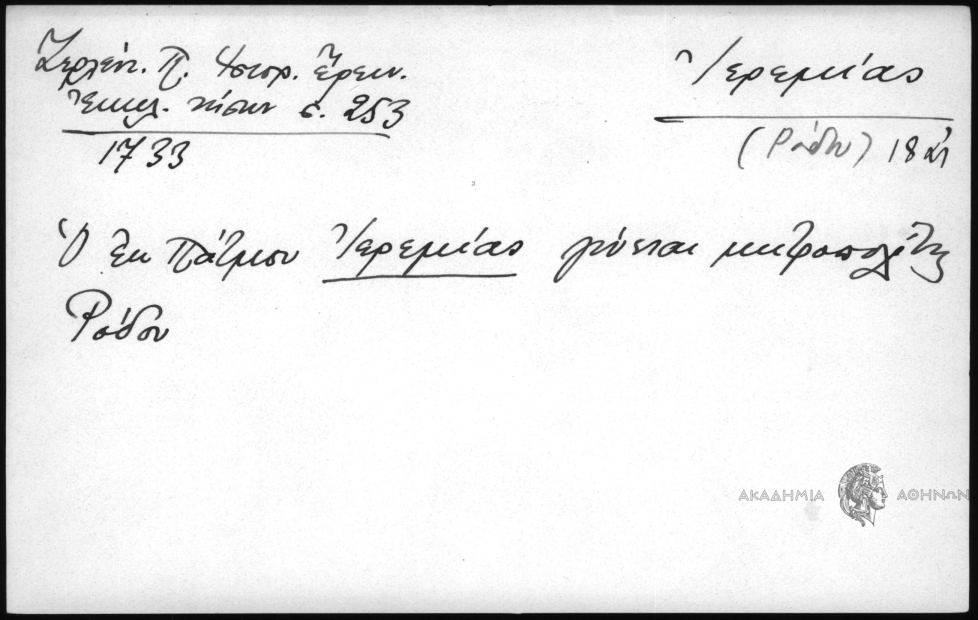 Ζερλέντ. Π. Ἱστορ. Ἔρευν.
Ἐκκλ. νήσων σ. 253
1733
Ἱερεμίας
(Ρόδου) 18 αἰ
Ὁ ἐκ Πάτμου Ἱερεμίας γίνεται μητροπολίτης
Ρόδου
ΑΚΑΔΗΜΙΑ ΑΘΗΝΩΝ